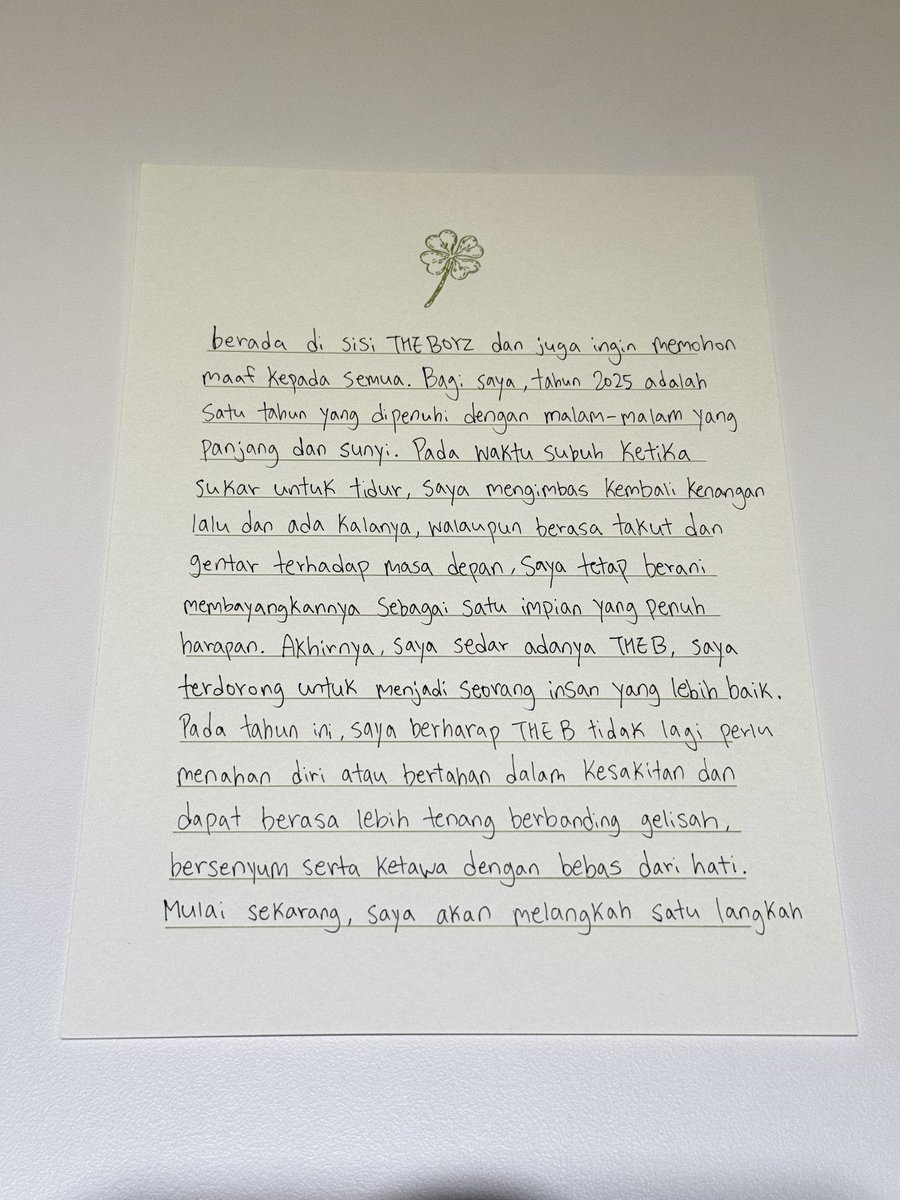 berada di sisi THE BOYZ dan juga ingin memohon
maaf kepada semua. Bagi saya, tahun 2025 adalah
satu tahun yang dipenuhi dengan malam-malam yang
panjang dan sunyi. Pada waktu subuh ketika
sukar untuk tidur, saya mengimbas kembali kenangan
lalu dan ada kalanya, walaupun berasa takut dan
gentar terhadap masa depan, saya tetap berani
membayangkannya sebagai satu impian yang penuh
harapan. Akhirnya, saya sedar adanya THE B, saya
terdorong untuk menjadi seorang insan yang lebih baik.
Pada tahun ini, saya berharap THE B tidak lagi perlu
menahan diri atau bertahan dalam kesakitan dan
dapat berasa lebih tenang berbanding gelisah,
bersenyum serta ketawa dengan bebas dari hati.
Mulai sekarang, saya akan melangkah satu langkah